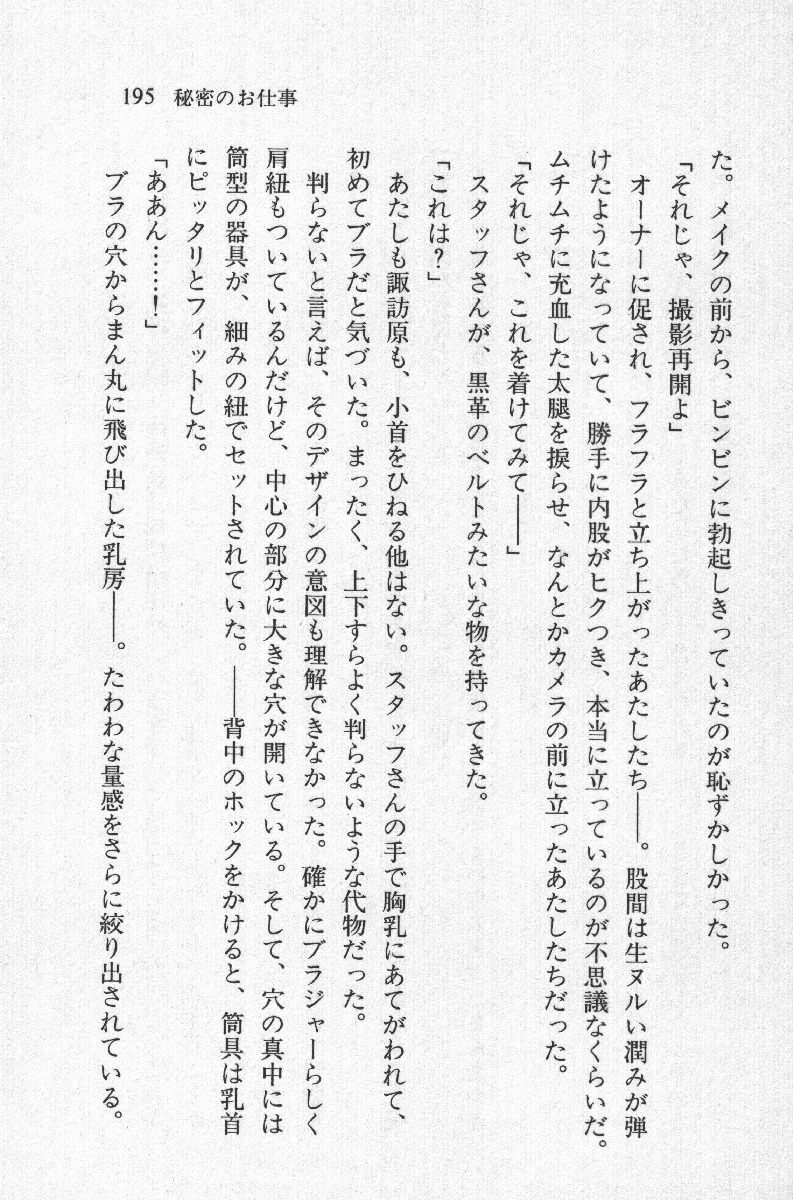 195 秘密のお仕事
た。メイクの前から、ビンビンに勃起しきっていたのが恥ずかしかった。
「それじゃ、撮影再開よ」
オーナーに促され、フラフラと立ち上がったあたしたち――。股間は生ヌルい潤みが弾
けたようになっていて、勝手に内股がヒクつき、本当に立っているのが不思議なくらいだ。
ムチムチに充血した太腿を捩らせ、なんとかカメラの前に立ったあたしたちだった。
「それじゃ、これを着けてみて――」
スタッフさんが、黒革のベルトみたいな物を持ってきた。
「これは？」
あたしも諏訪原も、小首をひねる他はない。スタッフさんの手で胸乳にあてがわれて、
初めてブラだと気づいた。まったく、上下すらよく判らないような代物だった。
判らないと言えば、そのデザインの意図も理解できなかった。確かにブラジャーらしく
肩紐もついているんだけど、中心の部分に大きな穴が開いている。そして、穴の真中には
筒型の器具が、細みの紐でセットされていた。――背中のホックをかけると、筒具は乳首
にピッタリとフィットした。
「ああん……！」
ブラの穴からまん丸に飛び出した乳房――。たわわな量感をさらに絞り出されている。